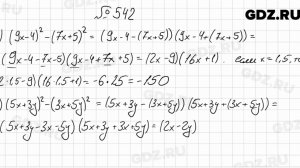 GDZ.RU
№ 542
) (9x-4)² - (7x+5)² = (9x-4-(7x+5))(9x-4+(7x+5)) =
(9x-4-7x-5)(9x-4+7x+5) = (2x-9)(16x+1). если x=1,5, то
2·1,5-9)(16·1,5+1) = -6·25 = -150
) (5x+3y)² - (3x+5y)² = (5x+3y-(3x+5y))(5x+3y+(3x+5y)) =
(5x+3y-3x-5y)(5x+3y+3x+5y) = (2x-2y)
GDZ.RU